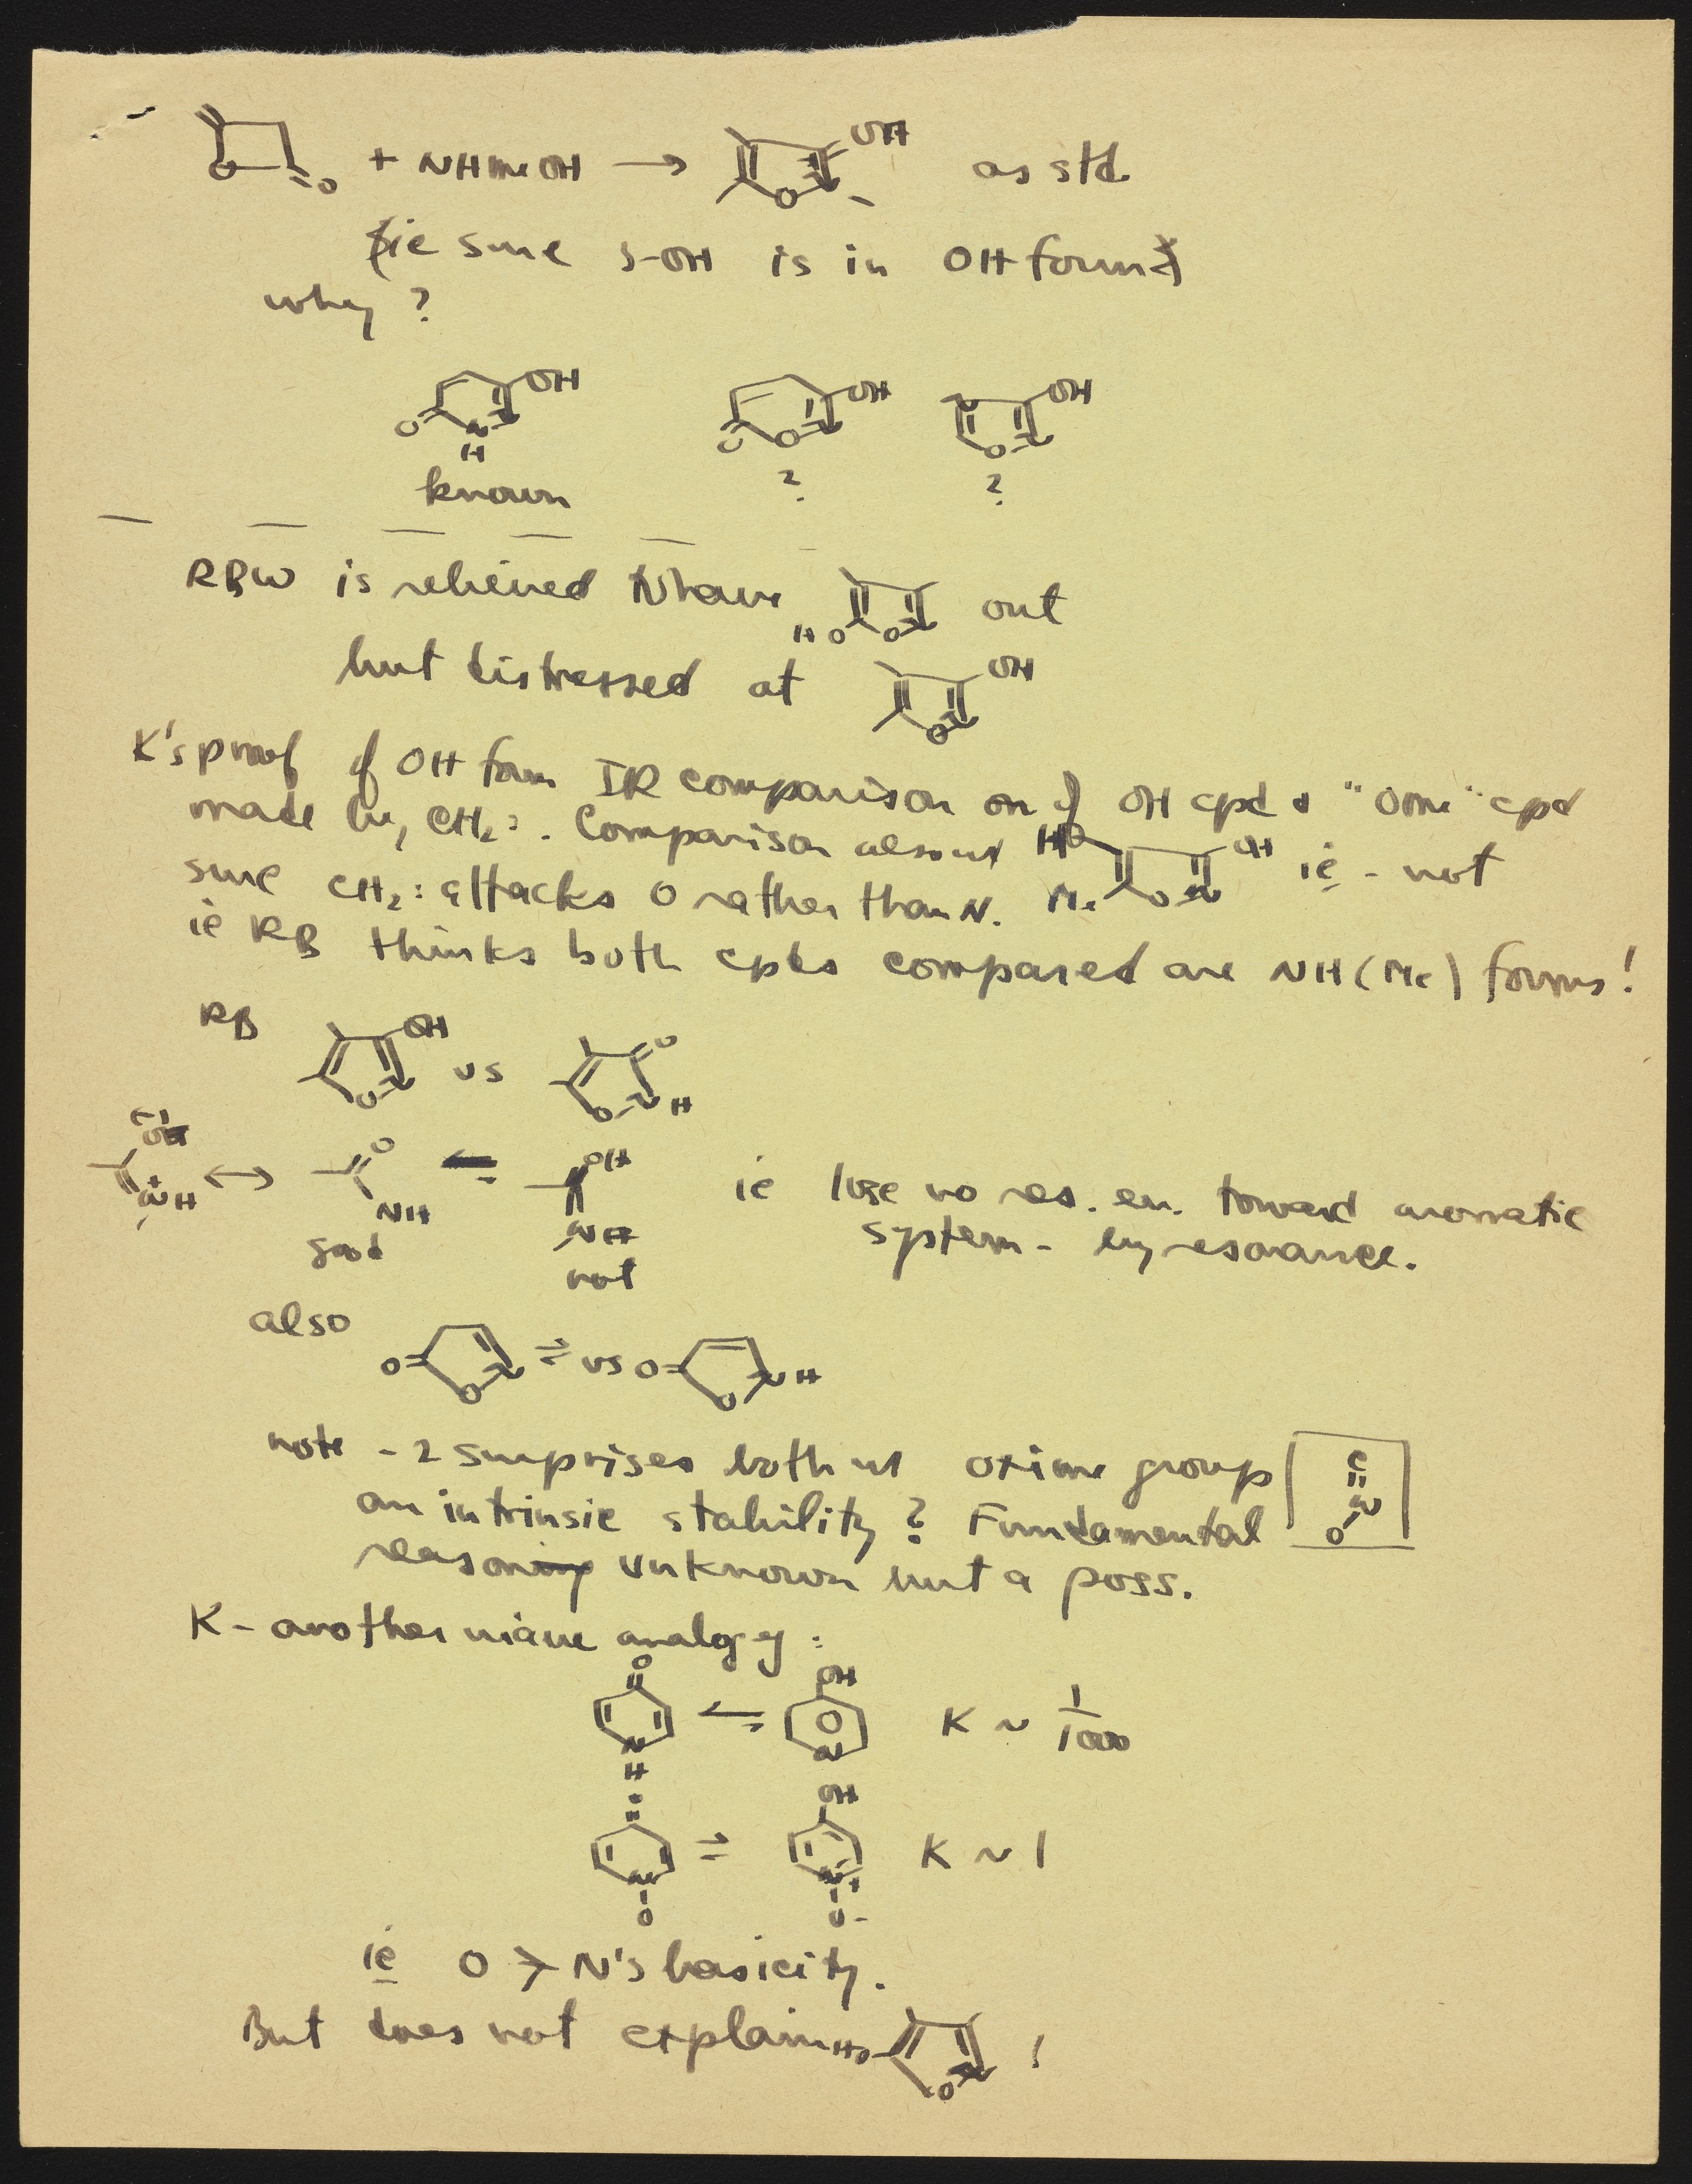 + NHMeOH → OH as std
(ie sure 3-OH is in OH form)
why?
OH OH OH
O N H O O N O N
known ? ?
RBW is relieved to have HO O N out
but distressed at OH O N
K's proof of OH form IR comparison on of OH cpd & "OMe" cpd
made by CH₂:. Comparison also w/ HO OH Me O N ie - not
sure CH₂: attacks O rather than N.
ie RB thinks both cpds compared are NH (Me) forms!
RB OH O N vs O O N H
OH NH ↔ O NH ⇌ OH NH ie lose no res. en. toward aromatic
good not system - by resonance.
also O= O N ⇌ vs O= O N H
note - 2 surprises both w/ oxime group C=N-O
an intrinsic stability? Fundamental
reason unknown but a poss.
K - another naive analogy:
O N H ⇌ OH N K ~ 1/1000
N O ⇌ OH N+ O- K ~ 1
ie O > N's basicity.
But does not explain HO O N !